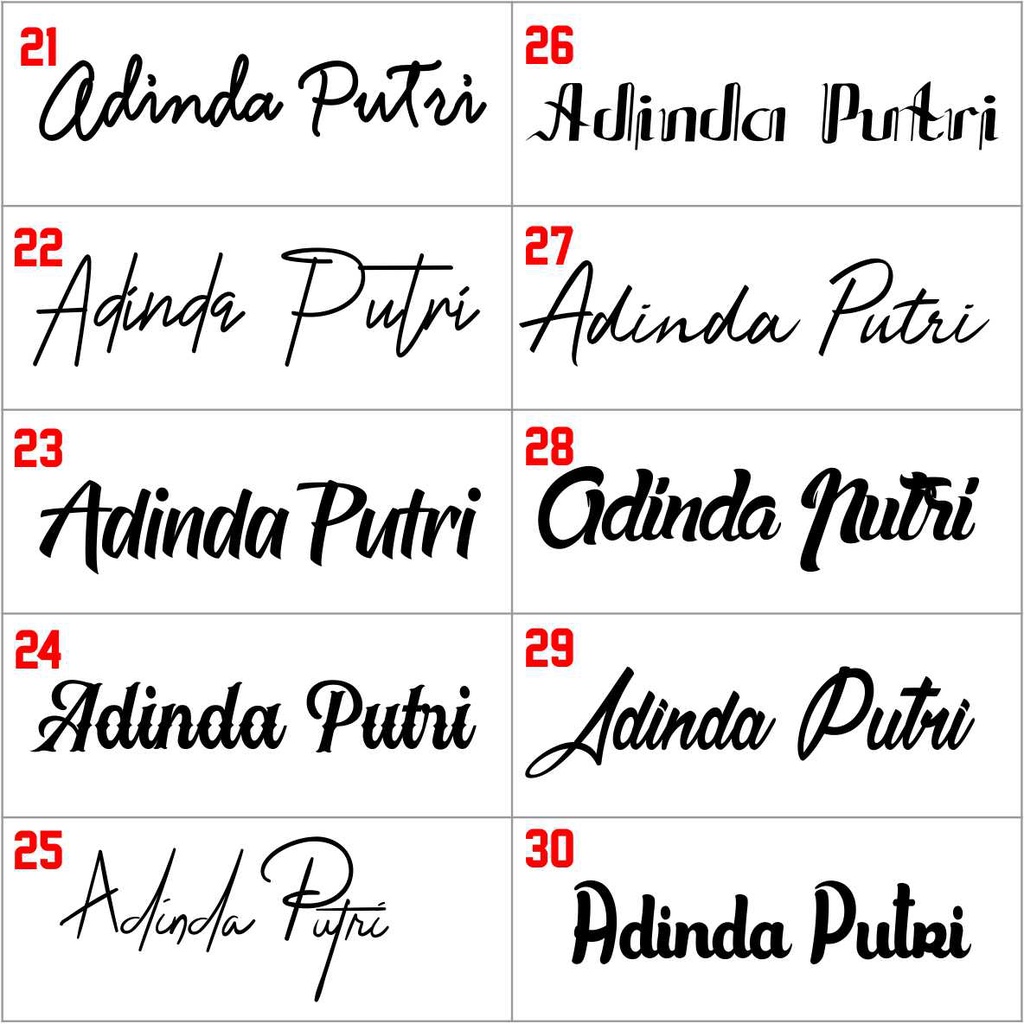 21
Adinda Putri
22
Adinda Putri
23
Adinda Putri
24
Adinda Putri
25
Adinda Putri
26
Adinda Putri
27
Adinda Putri
28
Adinda Nutri
29
Adinda Putri
30
Adinda Putri